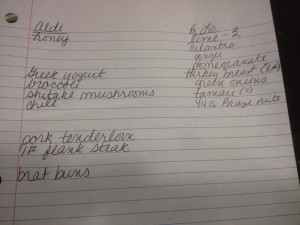 Aldi
honey
Greek yogurt
broccoli
shitake mushrooms
chile
pork tenderloin
1# flank steak
brat buns
lime - 3
cilantro
ginger
pomegranate
turkey breast
green onions
tamari
Brazil nuts